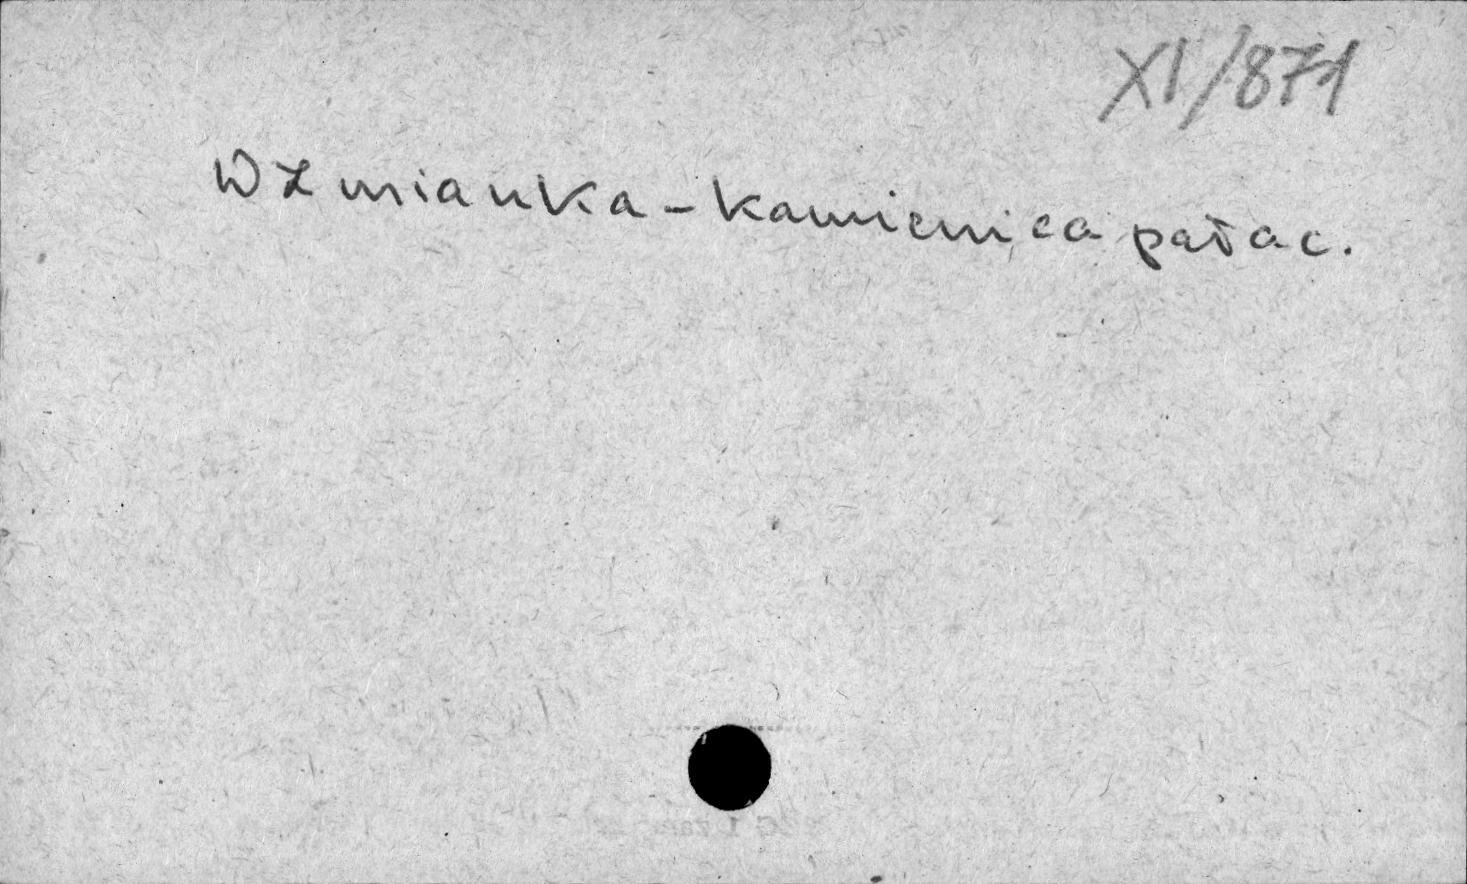 XI/871
Wzmianka - kamienica pałac.